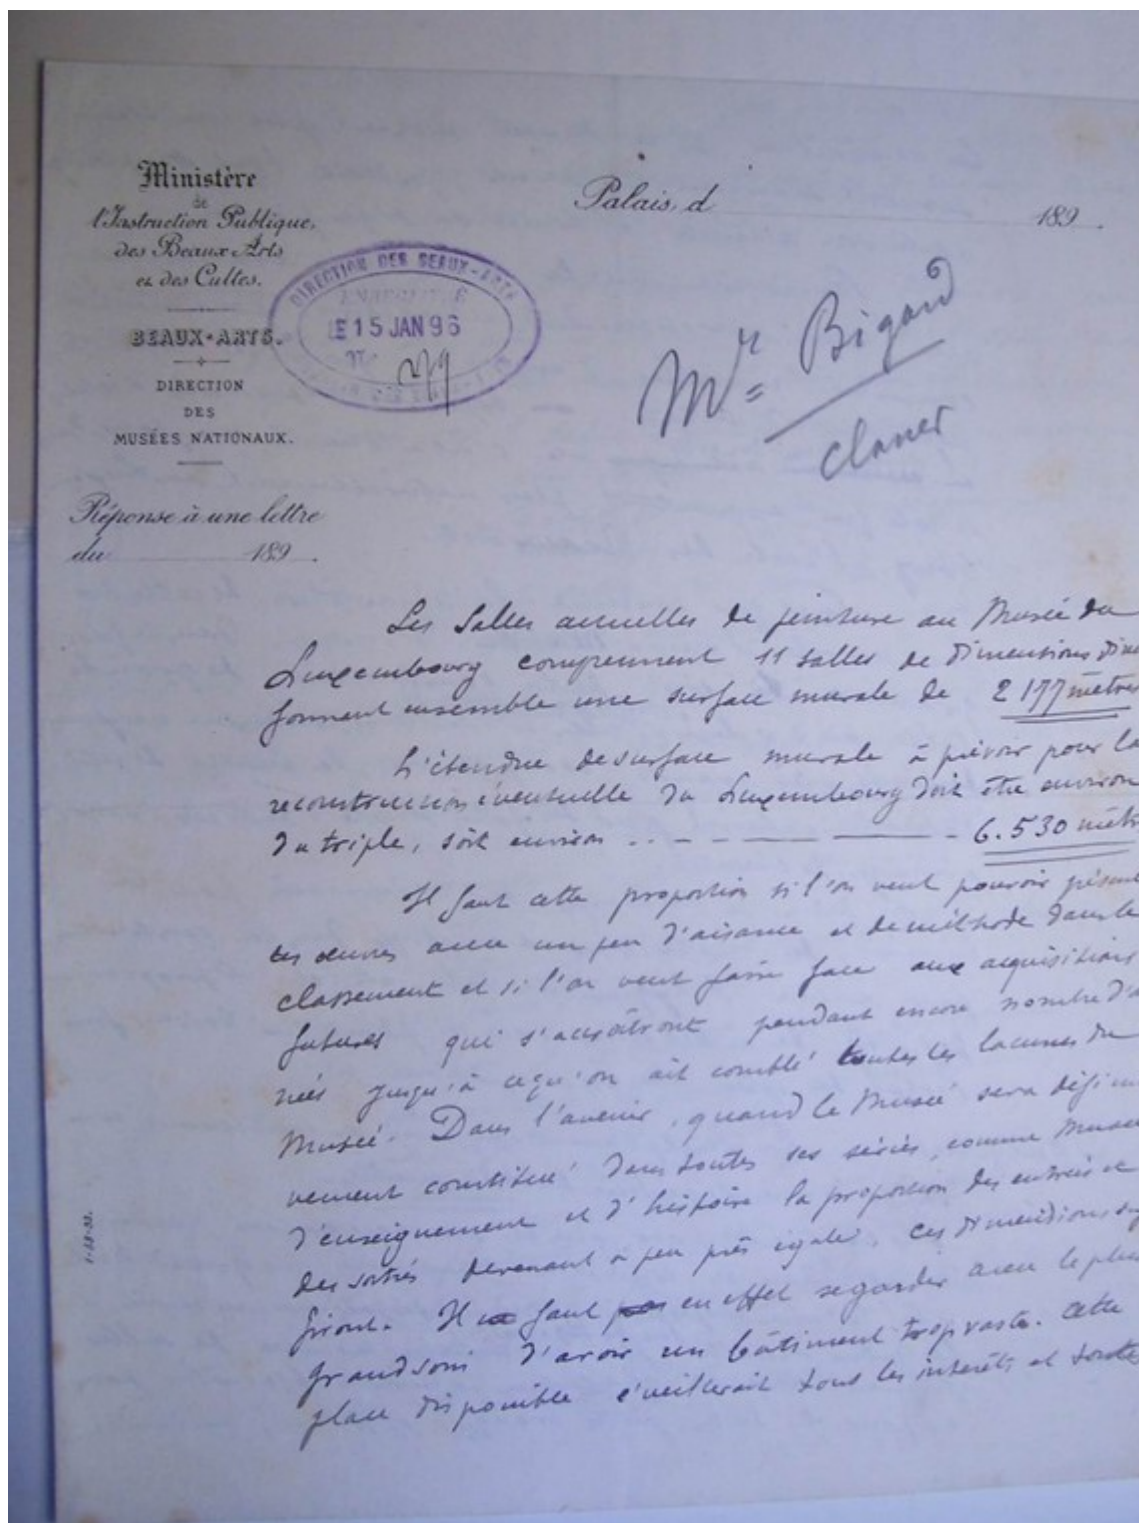 Ministère
de
l'Instruction Publique,
des Beaux-Arts
et des Cultes.
BEAUX-ARTS.
DIRECTION
DES
MUSÉES NATIONAUX.
Réponse à une lettre
du 189 .
DIRECTION DES BEAUX-ARTS
LE 15 JAN 96
No 279
Palais, d 189 .
Mr Bigard
classer
Les Salles actuelles de peinture au Musée du
Luxembourg comprennent 11 salles de dimensions
formant ensemble une surface murale de 2177 mètres
L'étendue de surface murale à prévoir pour la
reconstruction éventuelle du Luxembourg doit être environ
du triple, soit environ .. — — — 6.530 mèt
Il faut cette proportion si l'on veut pouvoir
les œuvres avec un peu d'aisance et de méthode dans le
classement et si l'on veut faire face aux acquisitions
futures qui s'accroîtront pendant encore nombre d'
nées jusqu'à ce qu'on ait comblé toutes les lacunes du
Musée. Dans l'avenir, quand le Musée sera défini
vement constitué dans toutes ses séries, comme Musée
d'enseignement et d'histoire la proportion des entrées et
des sorties devenant à peu près égale, ces dimensions suf
firont. Il faut en effet se garder avec le plus
grand soin d'avoir un bâtiment trop vaste. Cette
place disponible éveillerait tous les intérêts et toute
1-28-93.